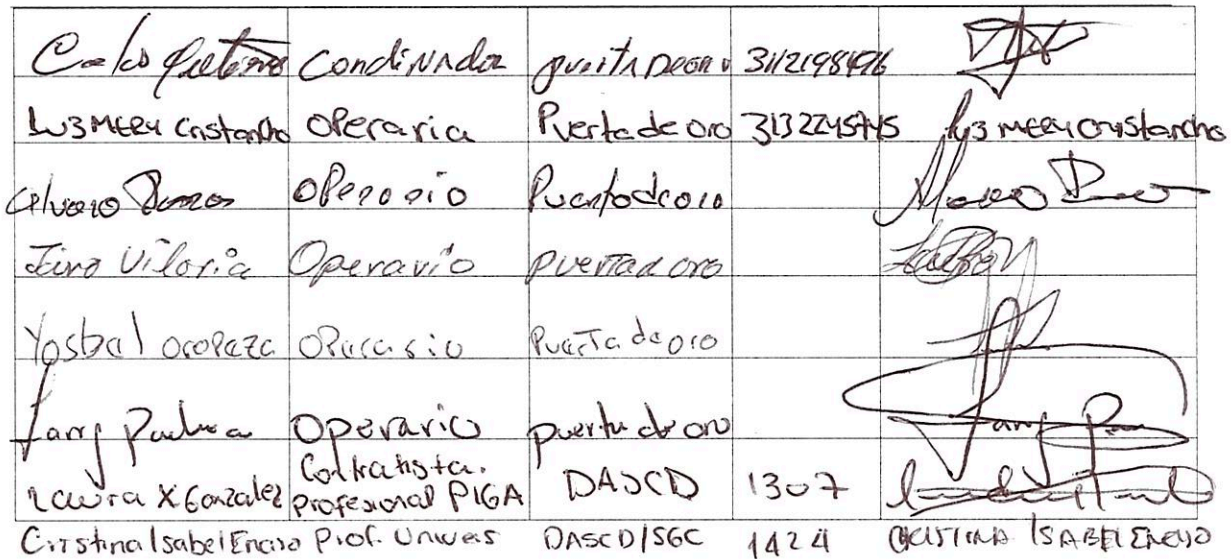 Carlos Gutierrez Condinador puerta Deoro 3112198496
Luz MERY Cristancho OPeraria Puerta de oro 3132245745 luz MERY Cristancho
Alvaro OPerario Puertadeoro
Jeiro Viloria Operario puertad oro
Yosbal oropeza OPerario Puerta de oro
Operario puerta de oro
Laura X Gonzalez Contratista. DASCD 1307
Profesional PIGA
Cristina Isabel Enciso Prof. Univers DASCD/SGC 1424 CRISTINA ISABEL ENCISO